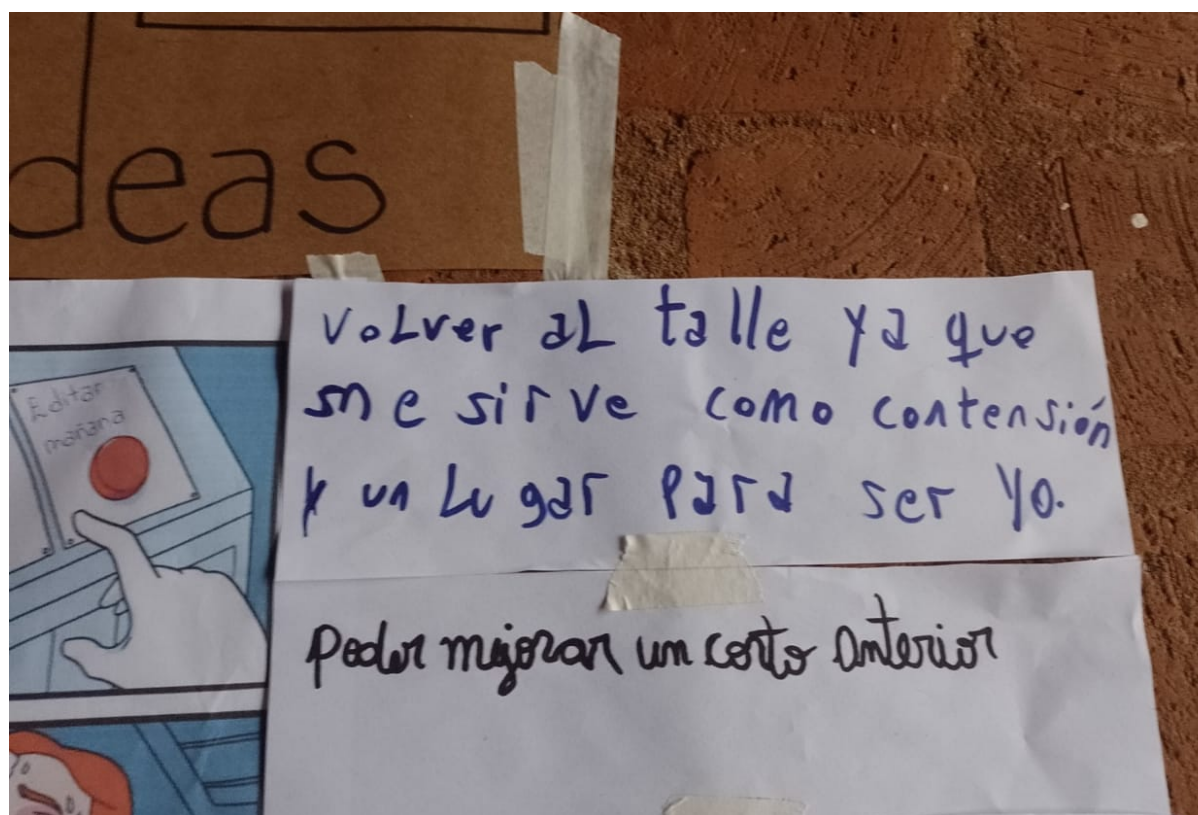 deas
Editar
mañana
VoLver aL talle ya que
me sirve como contensión
y un Lugar para ser yo.
Poder mejorar un corto anterior